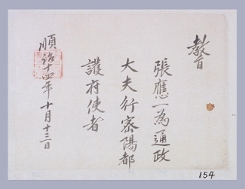 教旨
張應一為通政
大夫行密陽都
護府使者
順治十四年十月十三日
154